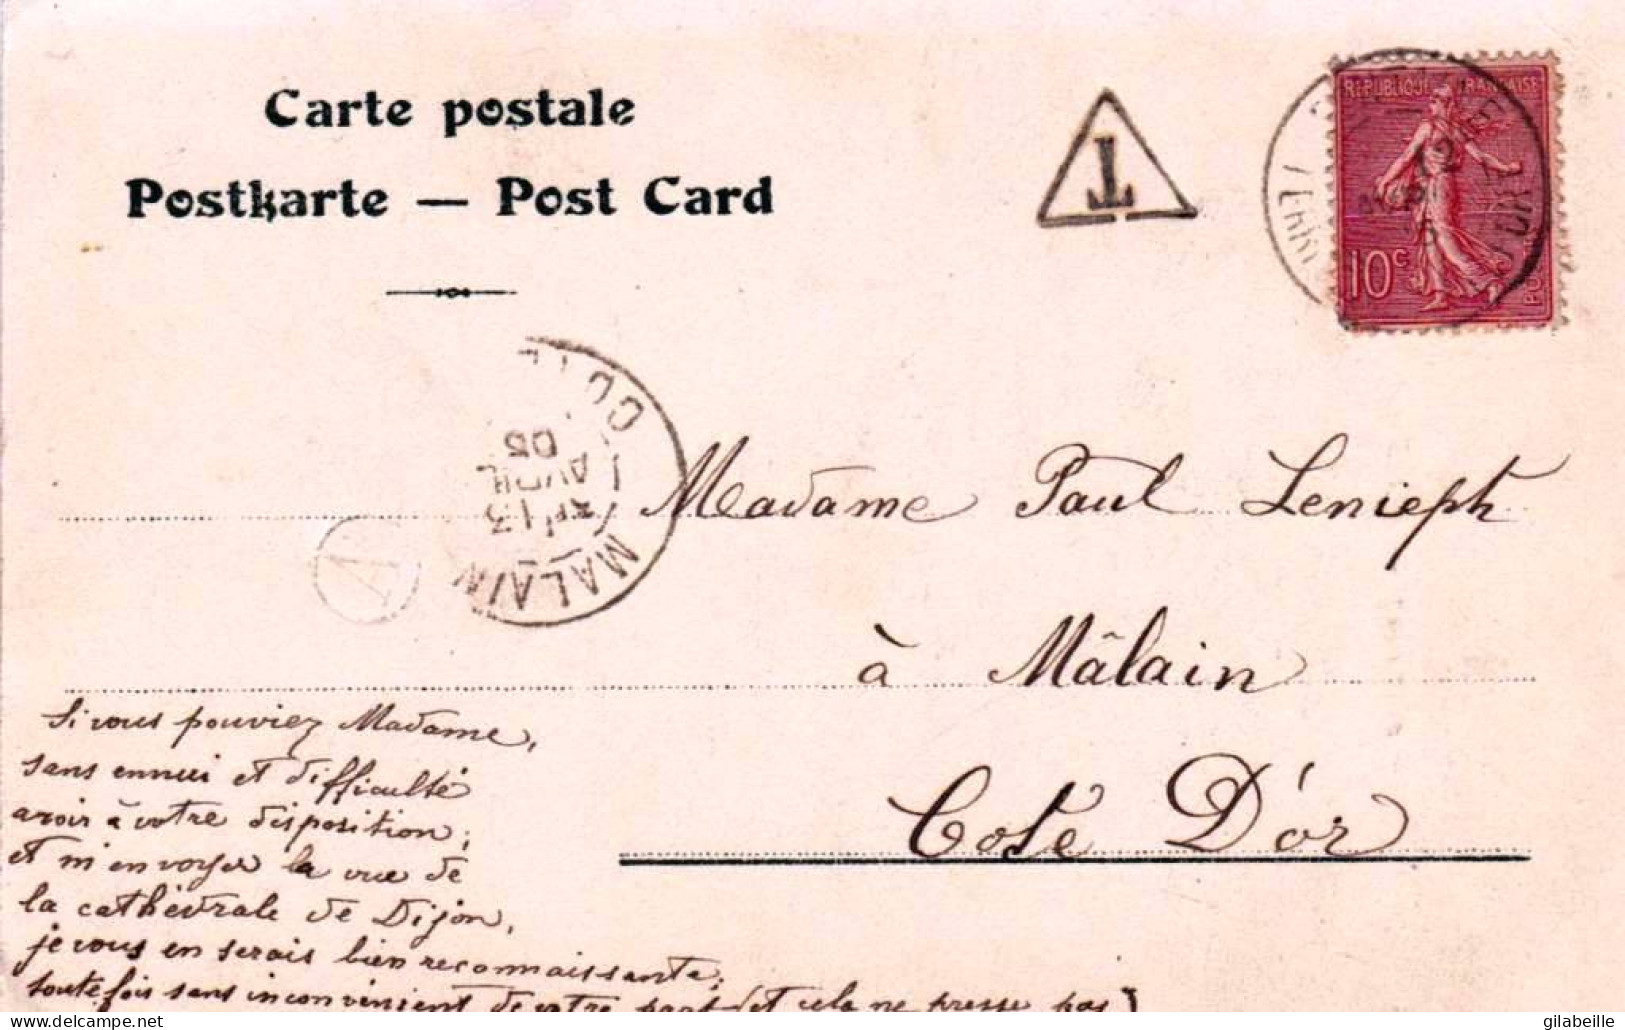 Carte postale
Postkarte — Post Card
T
REPUBLIQUE FRANÇAISE
10c
12
05
AVRIL
13
MALAIN
A
Madame Paul Lenieph
à Mâlain
Côte D'or
Si vous pouviez Madame,
sans ennui et difficulté
avoir à votre disposition,
et m'envoyer la vue de
la cathédrale de Dijon,
je vous en serais bien reconnaissante,
toutefois sans inconvénient de votre part et cela ne presse pas
gilabeille